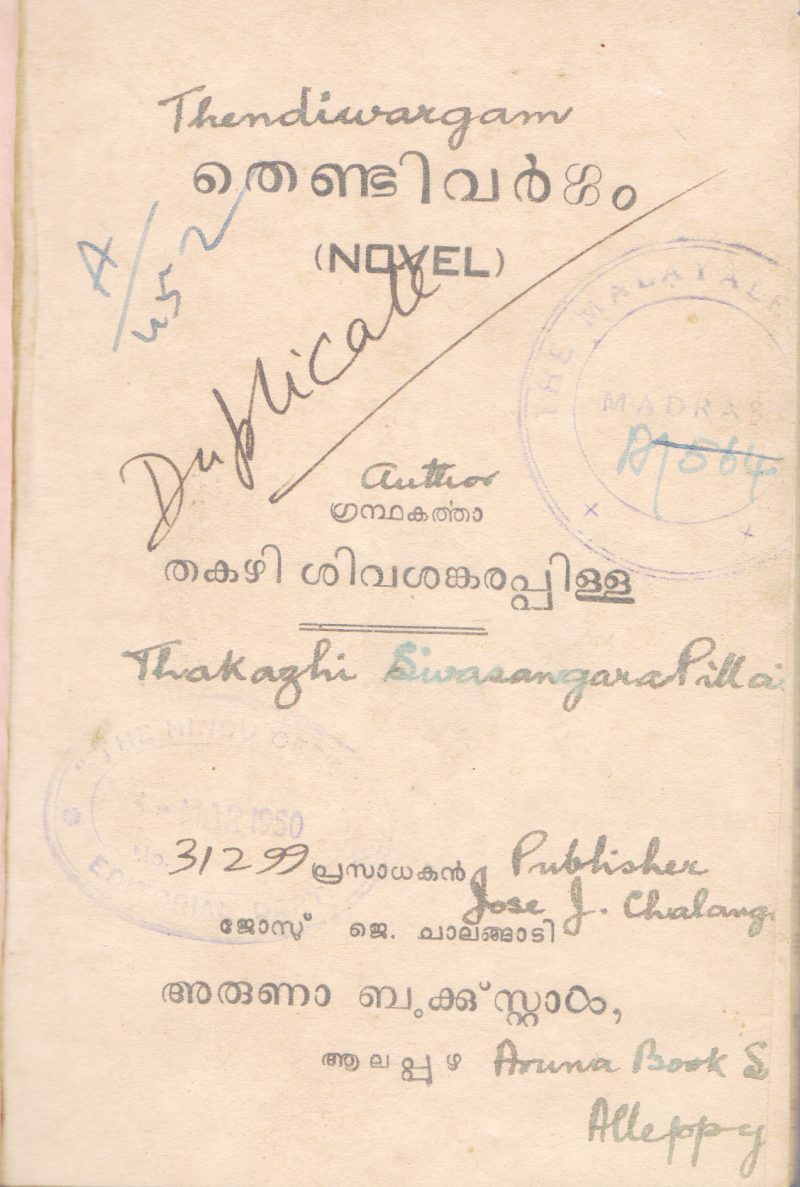 Thendiwargam
തെണ്ടിവർഗ്ഗം
A/452
(NOVEL)
Duplicate
THE MALAYALEE
MADRAS
A/564
Author
ഗ്രന്ഥകർത്താ
തകഴി ശിവശങ്കരപ്പിള്ള
Thakazhi SivasangaraPillai
"THE HINDU OF
MAR 1950
No. 31299
EDITORIAL
പ്രസാധകൻ Publisher
Jose J. Chalang
ജോസ് ജെ. ചാലങ്ങാടി
അരുണാ ബുക്ക്സ്റ്റാൾ,
ആലപ്പുഴ Aruna Book S
Alleppy